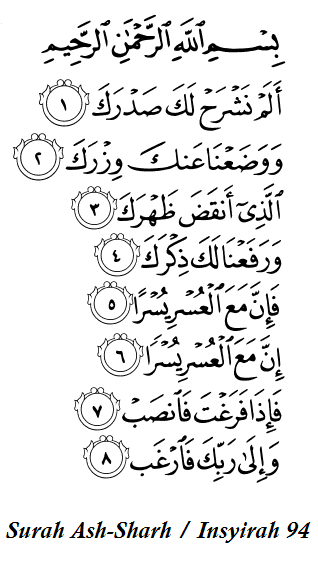 بِسْمِ اللَّهِ الرَّحْمَٰنِ الرَّحِيمِ
أَلَمْ نَشْرَحْ لَكَ صَدْرَكَ ١
وَوَضَعْنَا عَنكَ وِزْرَكَ ٢
الَّذِي أَنقَضَ ظَهْرَكَ ٣
وَرَفَعْنَا لَكَ ذِكْرَكَ ٤
فَإِنَّ مَعَ الْعُسْرِ يُسْرًا ٥
إِنَّ مَعَ الْعُسْرِ يُسْرًا ٦
فَإِذَا فَرَغْتَ فَانصَبْ ٧
وَإِلَىٰ رَبِّكَ فَارْغَب ٨
Surah Ash-Sharh / Insyirah 94